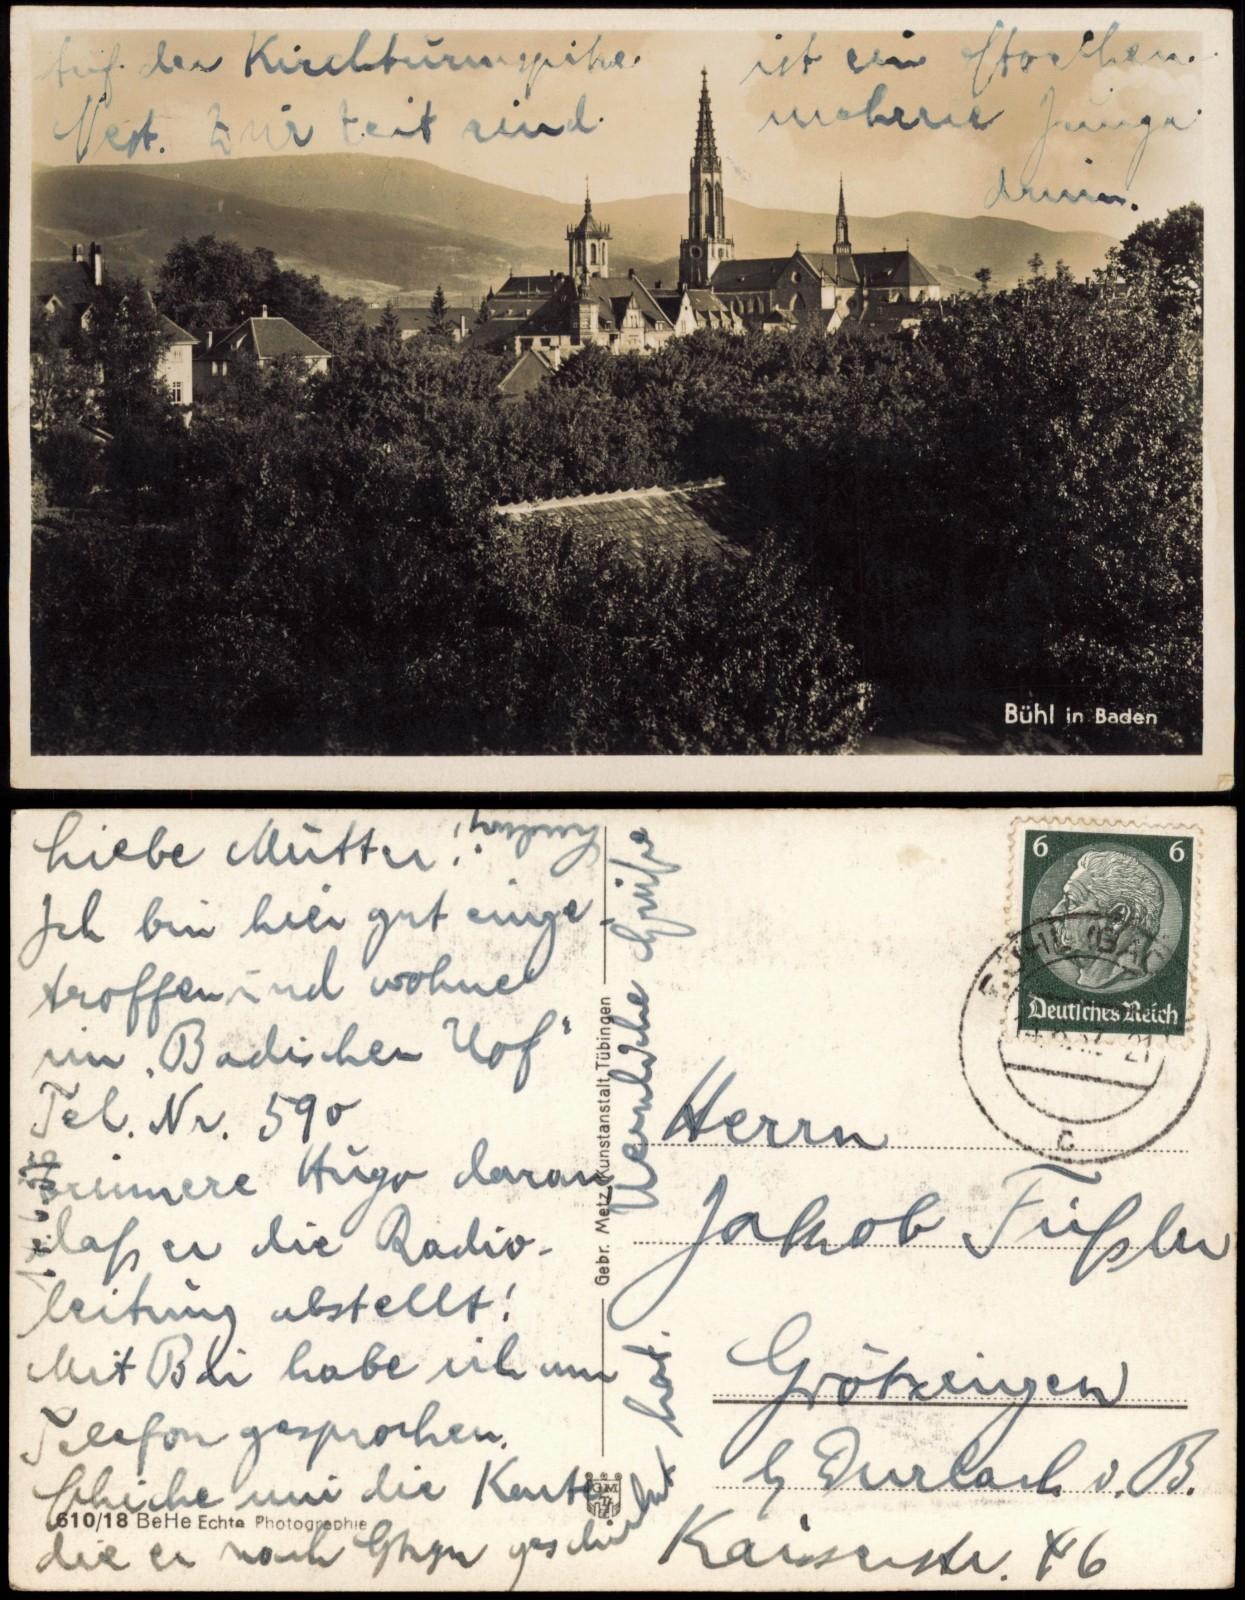 Auf der Kirchturmspitze ist ein Storchen.
Nest. Zur Zeit sind mehrere Junge
drinn.
Bühl in Baden
Liebe Mutter!
Ich bin hier gut einge
troffen und wohne
im „Badischen Hof"
Tel. Nr. 590
Erinnere Hugo daran
daß er die Radio-
leitung abstellt!
Mit Bdi habe ich am
Telefon gesprochen.
Schicke mir die Karte
die er nach Gtzgn geschickt
hat.
Herzliche Grüße
610/18 BeHe Echte Photographie
Gebr. Metz, Kunstanstalt, Tübingen
GM
6 6
Deutsches Reich
BÜHL (BADEN)
c
Herrn
Jakob Füßler
Grötzingen
b/ Durlach i. B.
Kaiserstr. 46